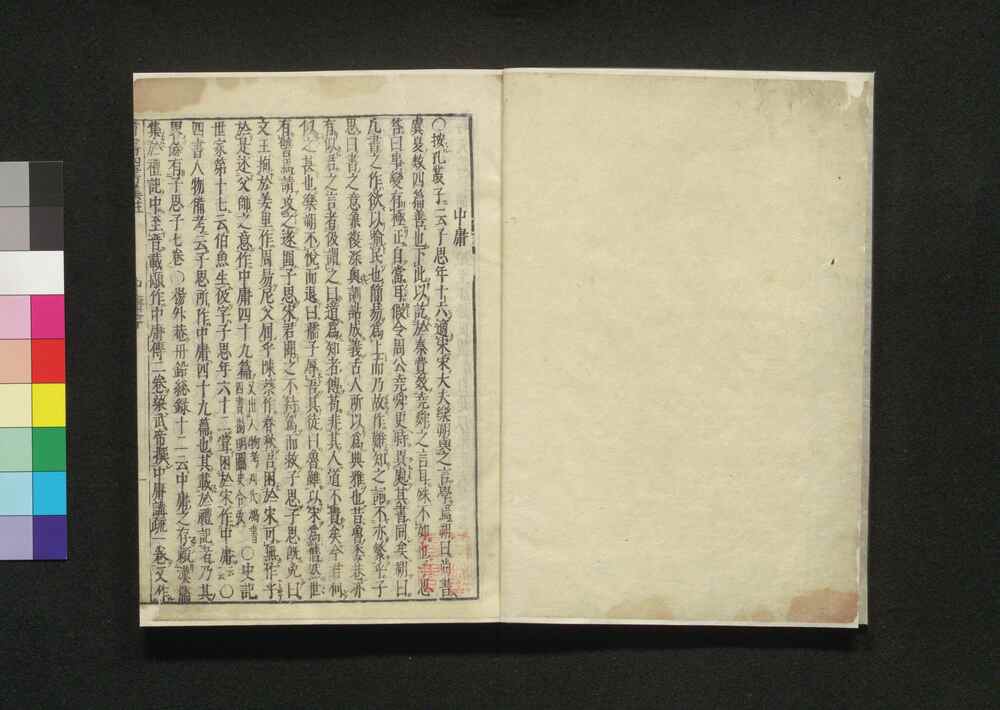 中庸
○按孔叢子云子思年十六適宋宋大夫樂朔與之言學焉朔曰尚書
虞夏數四篇善也下此以訖於秦費效堯舜之言耳殊不如也子思
答曰事變有極正自當耳假令周公堯舜更時異處其書同矣朔曰
凡書之作欲以喻民也簡易為上而乃故作難知之辭不亦繁乎子
思曰書之意兼復深奧訓詁成義古人所以為典雅也昔魯委巷亦
有似君之言者伋聞之曰道為知者傳苟非其人道不貴矣今君何
似之甚也樂朔不悅而退曰孺子辱吾其徒曰魯雖以宋為舊然世
有讎焉請攻之遂圍子思宋君聞之不待駕而救子思子思既免曰
文王拘於羑里作周易尼父厄於陳蔡作春秋吾困於宋可無作乎
於是述父師之意作中庸四十九篇 ○史記
世家第十七云伯魚生伋字子思年六十二嘗困於宋作中庸云云○
四書人物備考云子思所作中庸四十九篇也其載於禮記者乃其
有子思子七卷○楊外菴丹鉛總錄十二云中庸之存
集於禮記中至晉戴顒作中庸傳二卷梁武帝撰中庸講疏一卷又作